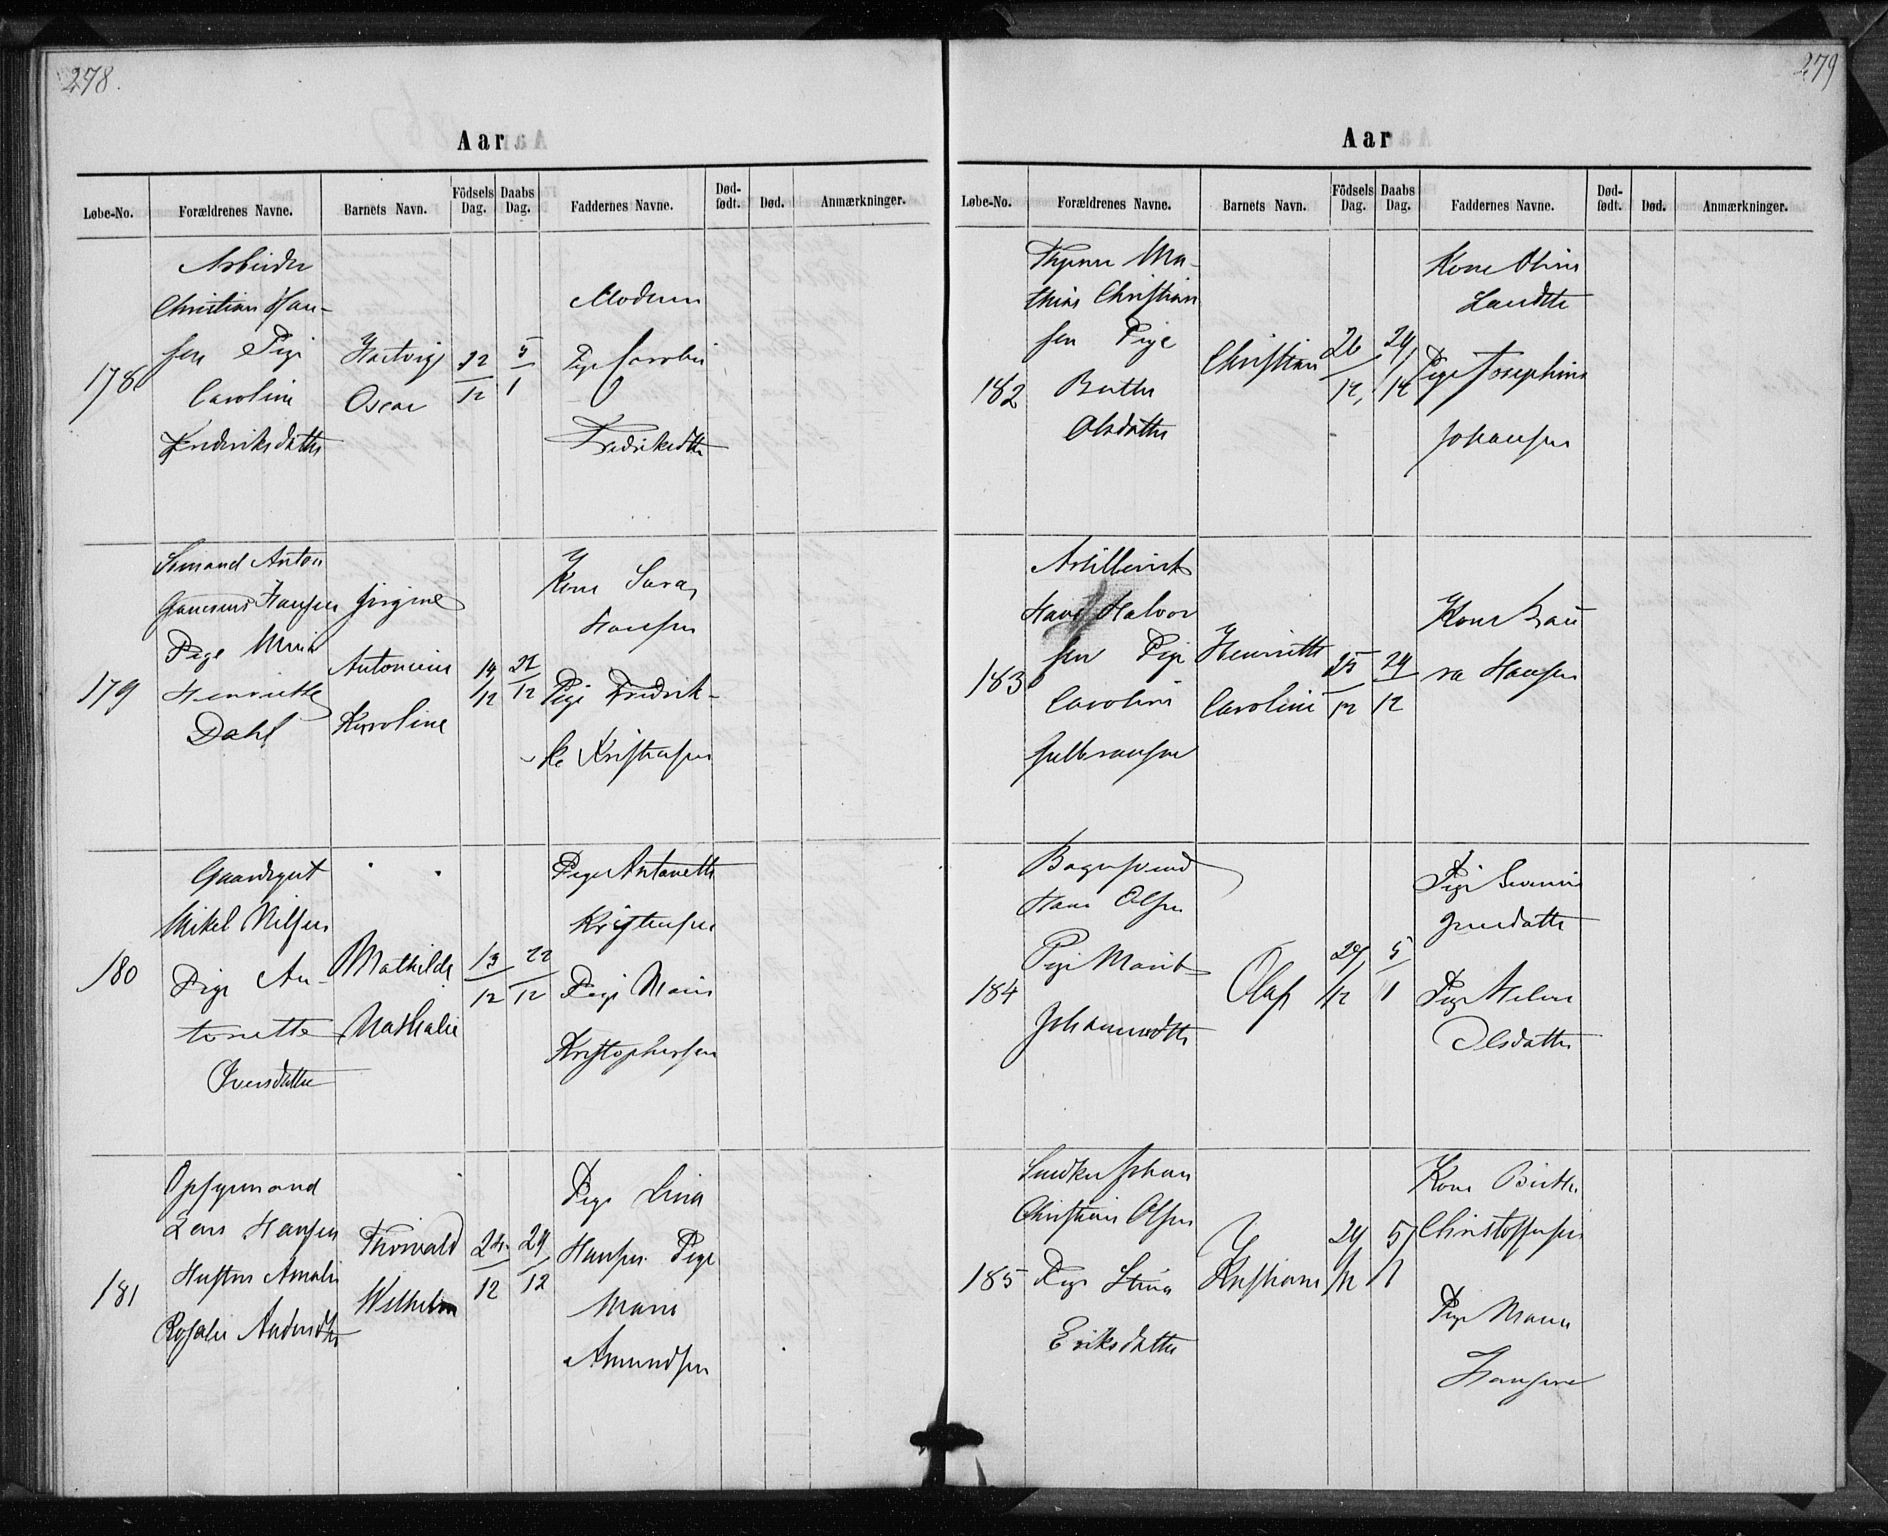 278.
Aar
Løbe-No. Forældrenes Navne. Barnets Navn. Födsels Dag. Daabs Dag. Faddernes Navne. Død-født. Død. Anmærkninger.
178
Arbeider
Christian Han-
sen Pige
Caroline
Frederiksdatter
Hartvig
Oscar
22/12
5/1
Moderen
Pige Caroline
Fredriksdtr
179
Sömand Anton
Hansen
Pige Marie
Henriette
Dahl
Jörgine
Antonette
Karoline
14/12
22/12
Kone Sara
Hansen
Pige Fredrik-
ke Kristensen
180
Gaardsgut
Mikel Nilsen
Pige An-
tonette
Iversdatter
Mathilde
Nathalie
13/12
22/12
Pige Antonette
Kristensen
Pige Marie
Kristophersen
181
Opsynsmand
Lars Hansen
Hustru Amalie
Rosalie Andersdtr
Thorvald
Wilhelm
24/12
29/12
Pige Lina
Hansen Pige
Marie
Amundsen
279
Aar
Løbe-No. Forældrenes Navne. Barnets Navn. Födsels Dag. Daabs Dag. Faddernes Navne. Død-født. Død. Anmærkninger.
182
Ma-
thias Christian
sen Pige
Berthe
Olsdatter
Christian
26/12
29/12
Kone Oline
Pige Josephine
Johansen
183
Artillerist
Hans Halvor
sen Pige
Caroline
Gulbransen
Henriette
Caroline
25/12
29/12
Kone Lau
ra Hansen
184
Bagersvend
Hans Olsen
Pige Marit
Johannesdtr
Olaf
29/12
5/1
Pige
Jensdatter
Pige Helene
Olsdatter
185
Snedker Johan
Christian Olsen
Pige Stina
Eriksdatter
Kristiane
29/12
5/1
Kone Birthe
Christoffersen
Pige Maren
Hansen